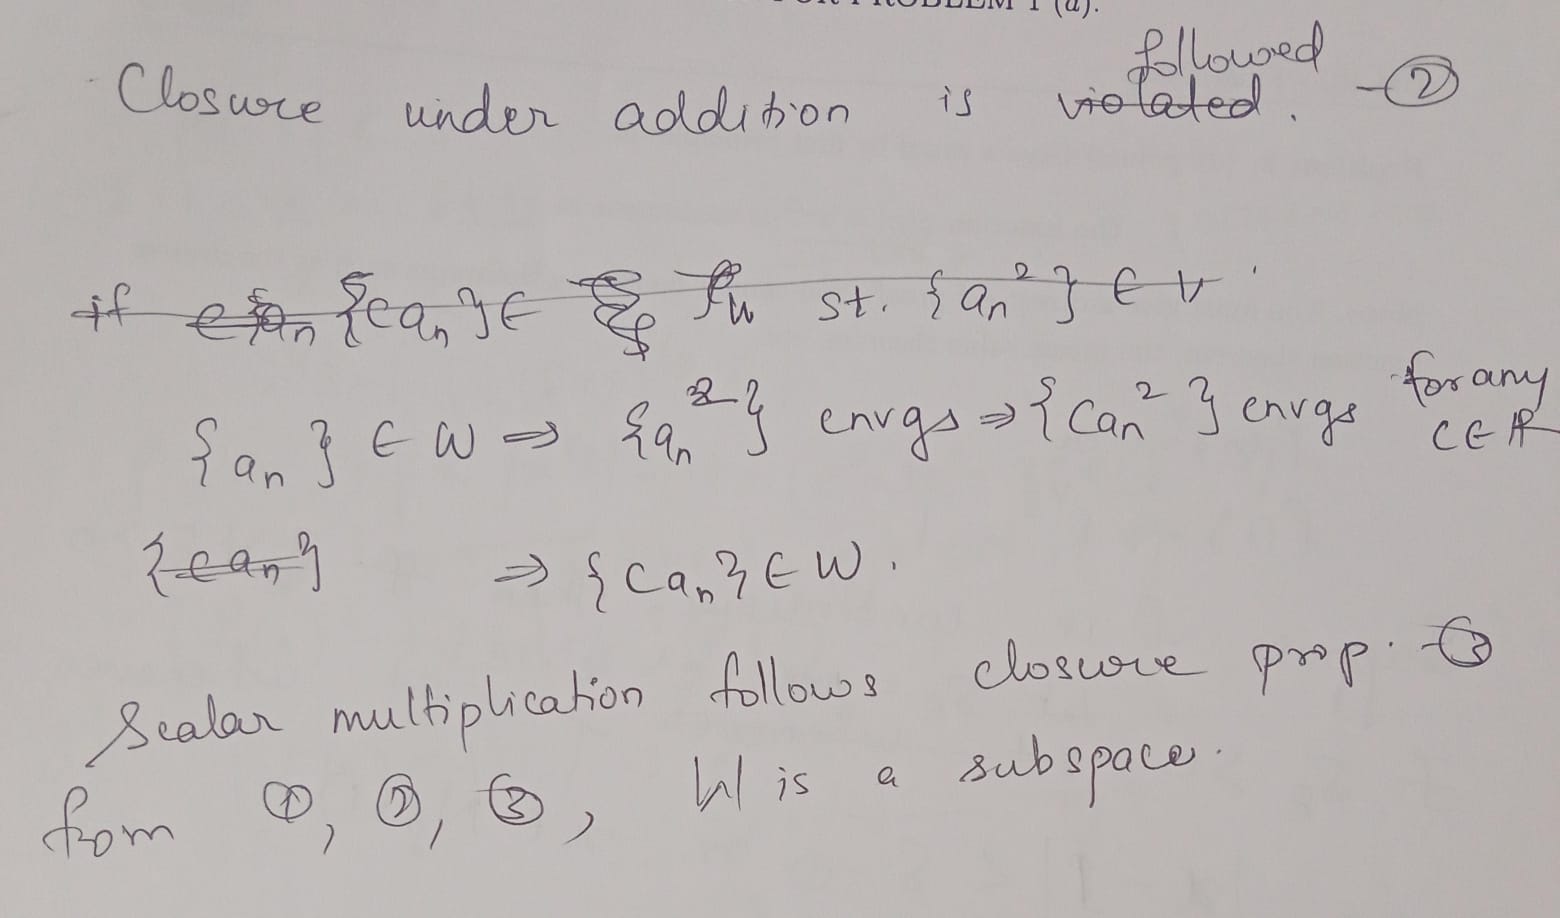 FOR PROBLEM 1 (a).
followed
Closure under addition is violated. - ②
if {can} ∈ st. {an²} ∈ V
{an} ∈ W ⇒ {an²} cnvgs ⇒ {Can² } cnvgs for any C∈ℝ
{can} ⇒ {Can} ∈ W.
Scalar multiplication follows closure prop. - ③
from ①, ②, ③, W is a subspace.